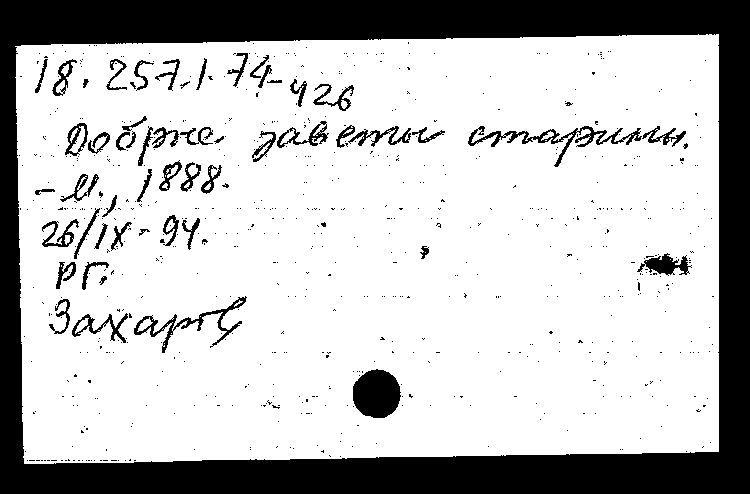 18.257.1.74-426
Добрые заветы старины.
-М., 1888.
26/IX-94.
РГ.